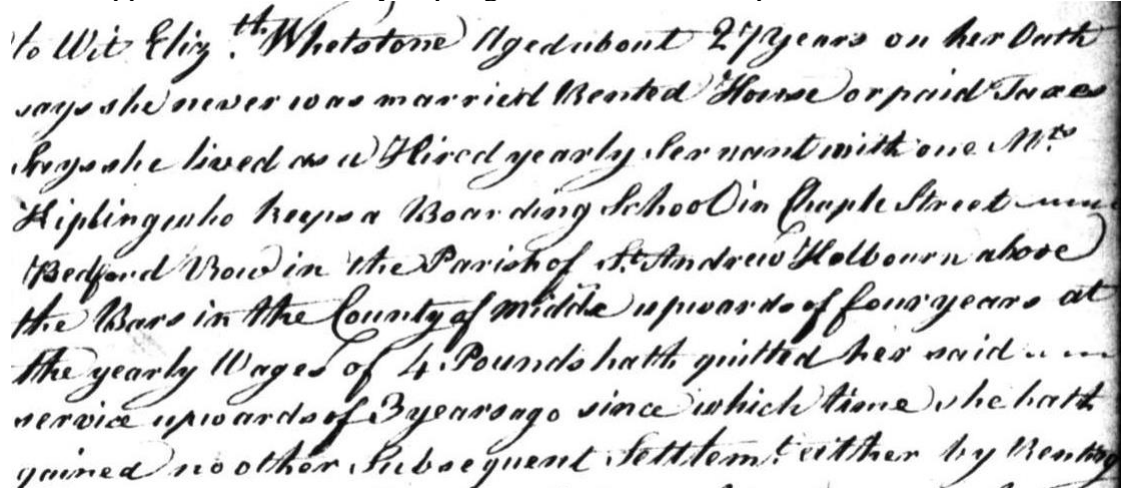 to Wit Eliz.th Whetstone Aged about 27 Years on her Oath
says she never was married Rented House or paid Taxes
Says she lived as a Hired yearly Servant with one Mrs
Kipling who keeps a Boarding School in Chaple Street
Bedford Row in the Parish of St. Andrew Holbourn above
the Bars in the County of Middx upwards of four years at
the yearly Wages of 4 Pounds hath quitted her said
service upwards of 3 years ago since which time she hath
gained no other Subsequent Settlem.t either by Renting